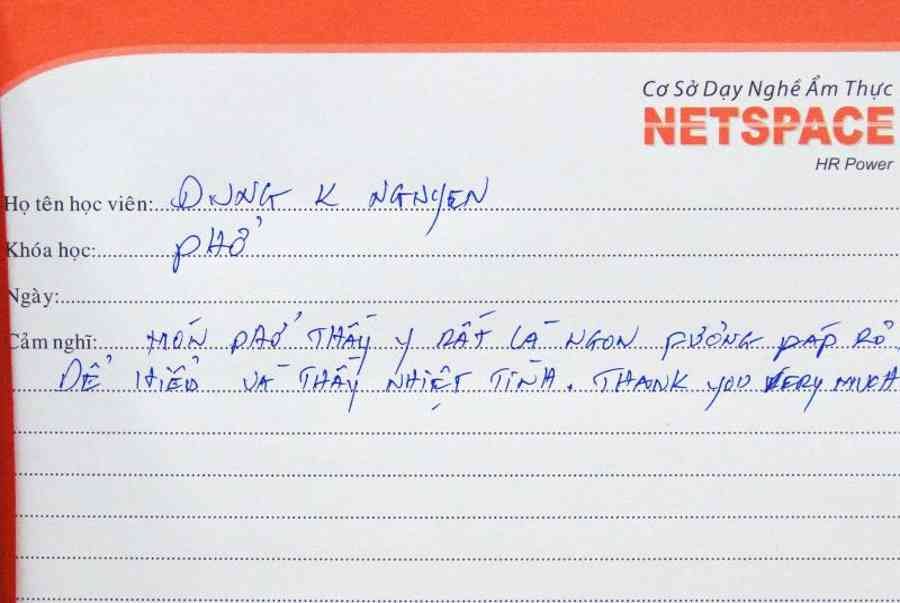 Cơ Sở Dạy Nghề Ẩm Thực
NETSPACE
HR Power
Họ tên học viên: DUNG K NGUYEN
Khóa học: PHỞ
Ngày:
Cảm nghĩ: MÓN PHỞ THẤY Y RẤT LÀ NGON PƯỞNG PÁP RỎ
DỂ HIỂU VÀ THẦY NHIỆT TÌNH. THANK YOU VERY MUCH